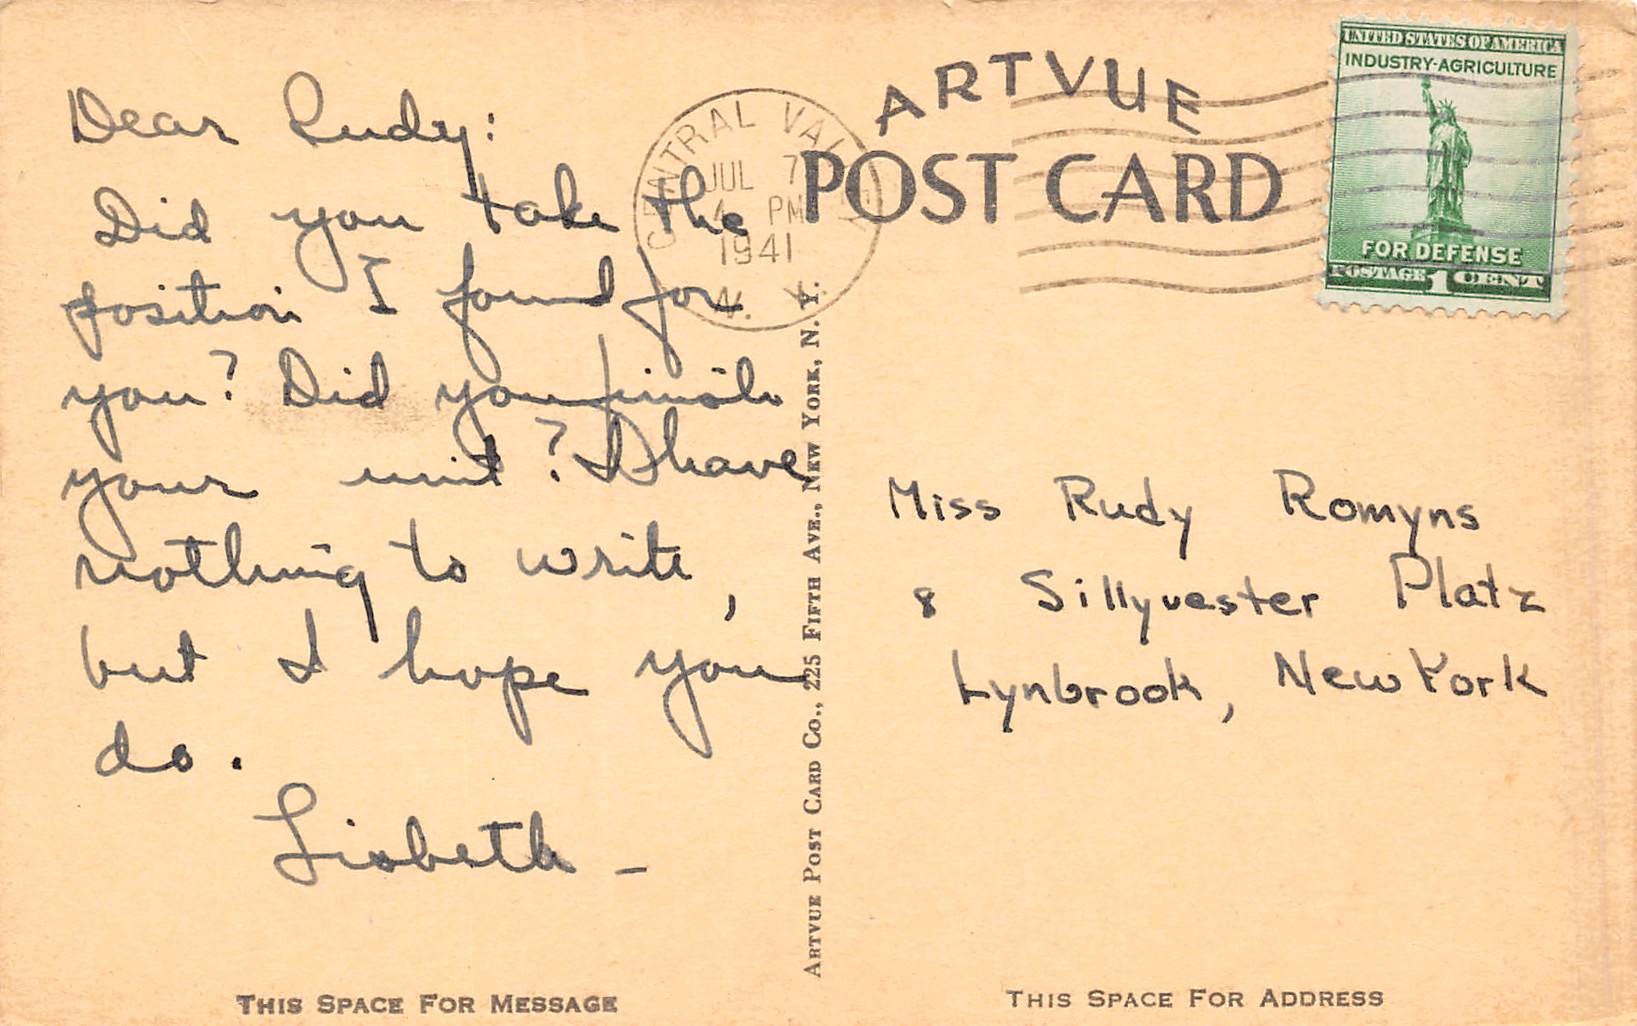 Dear Rudy:
Did you take the
position I found for
you? Did you finish
your unit? I have
nothing to write,
but I hope you
do.
Lisbeth -
THIS SPACE FOR MESSAGE
ARTVUE POST CARD CO., 225 FIFTH AVE., NEW YORK, N. Y.
CENTRAL VALLEY
JUL 7
4 PM
1941
N. Y.
ARTVUE
POST CARD
UNITED STATES OF AMERICA
INDUSTRY-AGRICULTURE
FOR DEFENSE
POSTAGE 1 CENT
Miss Rudy Romyns
8 Sillyvester Platz
Lynbrook, New York
THIS SPACE FOR ADDRESS